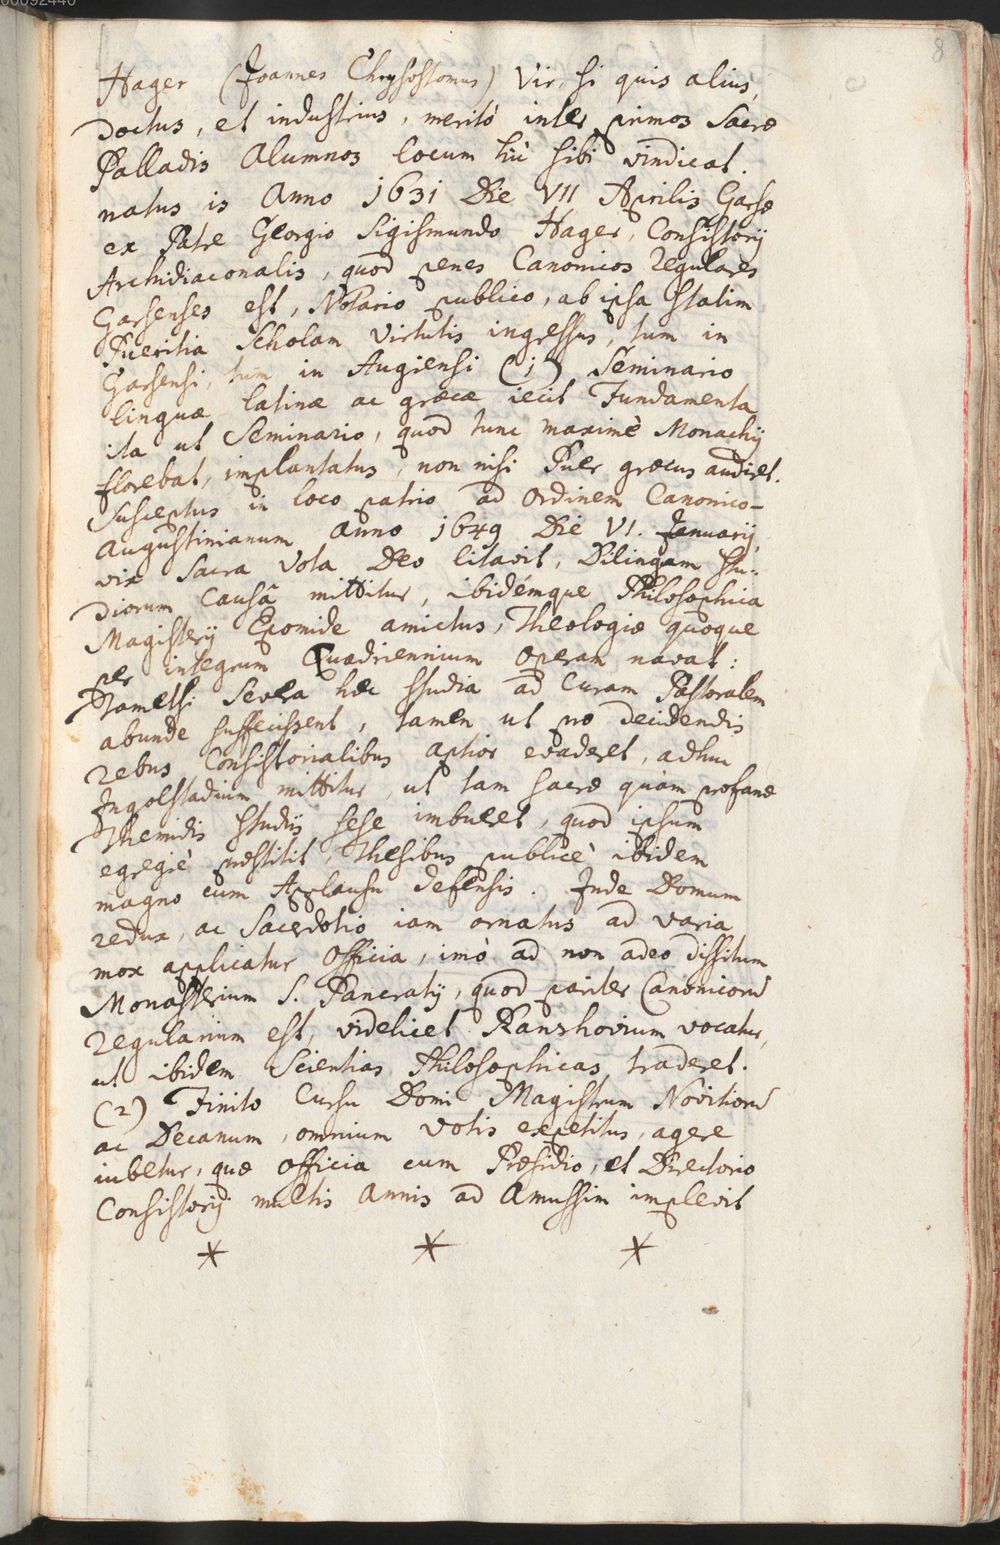 00092440
8
Hager (Joannes Chrysostomus) Vir, si quis alius,
Doctus, et industrius, meritò inter primos Sacræ
Palladis Alumnos locum hic sibi vindicat.
natus is Anno 1631 Die VII Aprilis Garsæ
ex Patre Georgio Sigismundo Hager, Consistorij
Archidiaconalis, quod penes Canonicos Regulares
Garsenses est, Notario publico, ab ipsa statim
Pueritia Scholam Virtutis ingressus, tum in
Garsensi, tum in Augiensi (1) Seminario
linguæ latinæ ac græcæ iecit Fundamenta
ita ut Seminario, quod tunc maximè Monachij
florebat, implantatus, non nisi Puer græcus audiret.
Susceptus in loco patrio ad Ordinem Canonico-
Augustinianum Anno 1649 Die VI. Januarij,
vix Sacra Vota Deo litavit, Dilingam stu-
diorum Causâ mittitur, ibidémque Philosophica
Magisterij Epomide amictus, Theologiæ quoque
per integrum Quadriennium operam navat:
Tametsi Severa hæc studia ad Curam Pastoralem
abunde suffecissent, tamen ut pro decidendis
rebus Consistorialibus aptior evaderet, adhuc
Ingolstadium mittitur, ut tam sacræ quàm profanæ
Themidis studijs sese imbueret, quod ipsum
egregiè præstitit, Thesibus publicè ibidem
magno cum Applausu defensis. Inde Domum
redux, ac Sacerdotio iam ornatus ad varia
mox applicatur Officia, imò ad non adeo dissitum
Monasterium S. Pancratij, quod pariter Canonicorū
regularium est, videlicet Ranshovium vocatur,
ut ibidem Scientias Philosophicas traderet.
(2) Finito Cursu Domi Magistrum Novitiorū
ac Decanum, omnium votis expetitus, agere
iubetur, quæ officia cum Præsidio, et Directorio
Consistorij multis Annis ad Amussim implevit
* * *